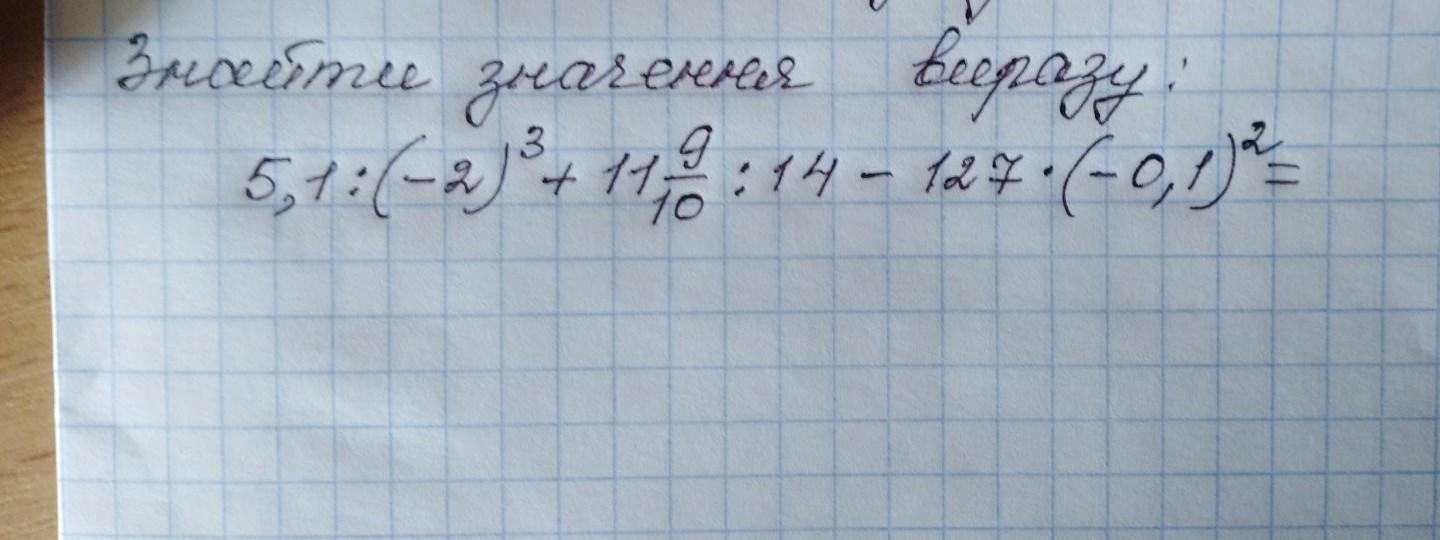 Знайти значення виразу:
5,1:(-2)³+11 9/10 :14-127·(-0,1)²=